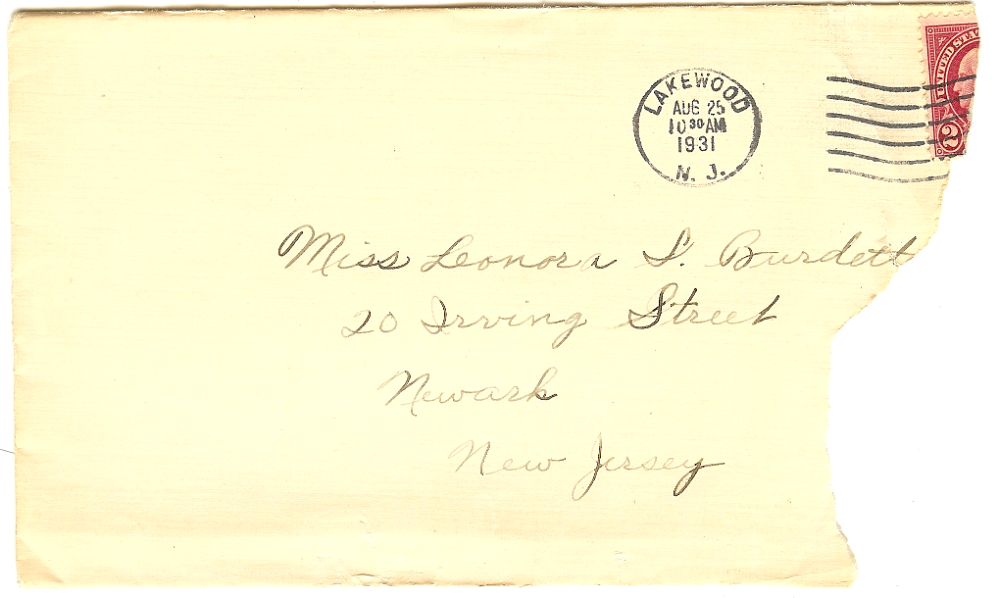 UNITED STA
2
LAKEWOOD
AUG 25
10 30 AM
1931
N. J.
Miss Leonora S. Burdett
20 Irving Street
Newark
New Jersey